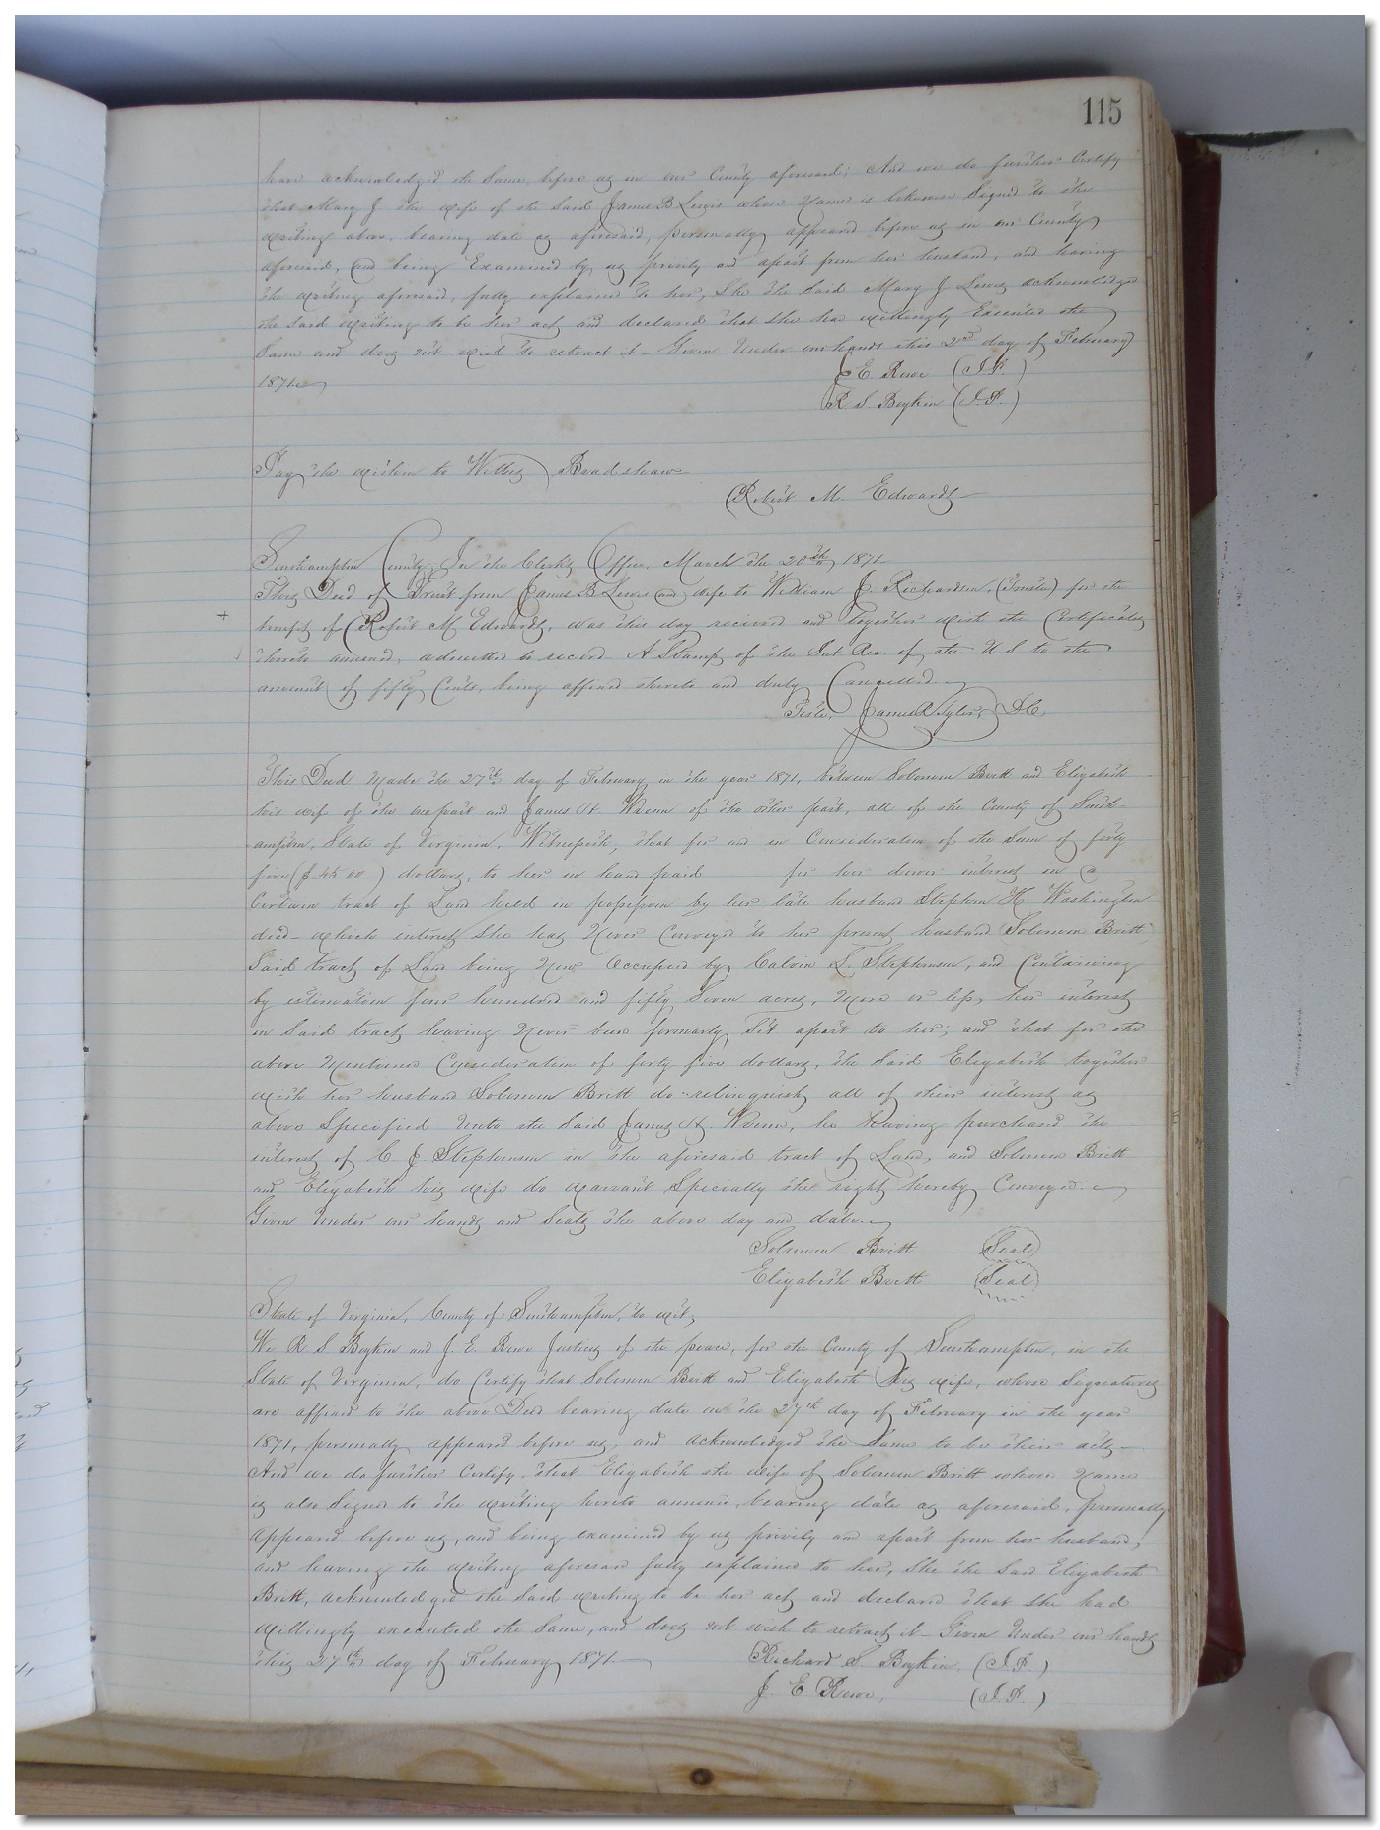 115
have acknowledged the same before us in our County aforesaid; And we do further Certify
that Mary J the wife of the said James B Lewis whose name is likewise Signed to the
writing above, bearing date as aforesaid, personally appeared before us in our County
aforesaid, and being Examined by us privily and apart from her husband, and having
the writing aforesaid, fully explained to her, She the Said Mary J Lewis acknowledged
the said writing to be her act and declared that she has willingly Executed the
Same and does not wish to retract it - Given Under our hands this 2nd day of February
1871.
J E Rowe (J.P.)
R S Boykin (J.P.)
Pay the within to Bradshaw
Robert M. Edwards
Southampton County, In the Clerks Office, March the 20th 1871
This Deed of Trust from James B Lewis and wife to William J. Richardson, (Trustee) for the
+
benefit of Robert M Edwards, was this day received and together with the Certificates
thereto annexed, admitted to record A Stamp of the Int Rev of the U S to the
amount of fifty Cents, being affixed thereto and duly Cancelled.
Teste, James R Tyler, DC.
This Deed Made the 27th day of February in the year 1871, between Solomon Britt and Elizabeth
his wife of the one part and James H Wrenn of the other part, all of the County of South-
ampton, State of Virginia, Witnesseth, that for and in Consideration of the Sum of forty
five ($45.00) dollars, to her in hand paid for her dower interest in a
Certain tract of Land held in possession by her late husband Stephen H Washington
decd - which interest she has Never Conveyed to her present husband Solomon Britt
Said tract of Land being Now Occupied by Calvin J. Stephenson, and Containing
by estimation four hundred and fifty Seven acres, More or less, her interest
in said tract having Never been formerly Set apart to her; and that for the
above Mentioned Consideration of forty five dollars, the Said Elizabeth together
with her husband Solomon Britt do relinquish all of their interest as
above Specified Unto the Said James H Wrenn, he Having purchased the
interest of C J Stephenson in the aforesaid tract of Land, and Solomon Britt
and Elizabeth his wife do warrant Specially the right hereby Conveyed.
Given Under our hands and Seals the above day and date.
Solomon Britt (Seal)
Elizabeth Britt (Seal)
State of Virginia, County of Southampton, to wit,
We R S Boykin and J. E. Rowe Justices of the peace, for the County of Southampton, in the
State of Virginia, do Certify that Solomon Britt and Elizabeth his wife, whose Signatures
are affixed to the above Deed bearing date on the 27th day of February in the year
1871, personally appeared before us, and acknowledged the Same to be their acts -
And we do further Certify that Elizabeth the wife of Solomon Britt whose Name
is also Signed to the writing hereto annexed, bearing date as aforesaid, personally
appeared before us, and being examined by us privily and apart from her husband,
and having the writing aforesaid fully explained to her, She the Said Elizabeth
Britt, acknowledged the Said writing to be her act and declared that she had
willingly executed the Same, and does not wish to retract it - Given Under our hands
this 27th day of February 1871 -
Richard S. Boykin, (J.P.)
J. E. Rowe, (J.P.)